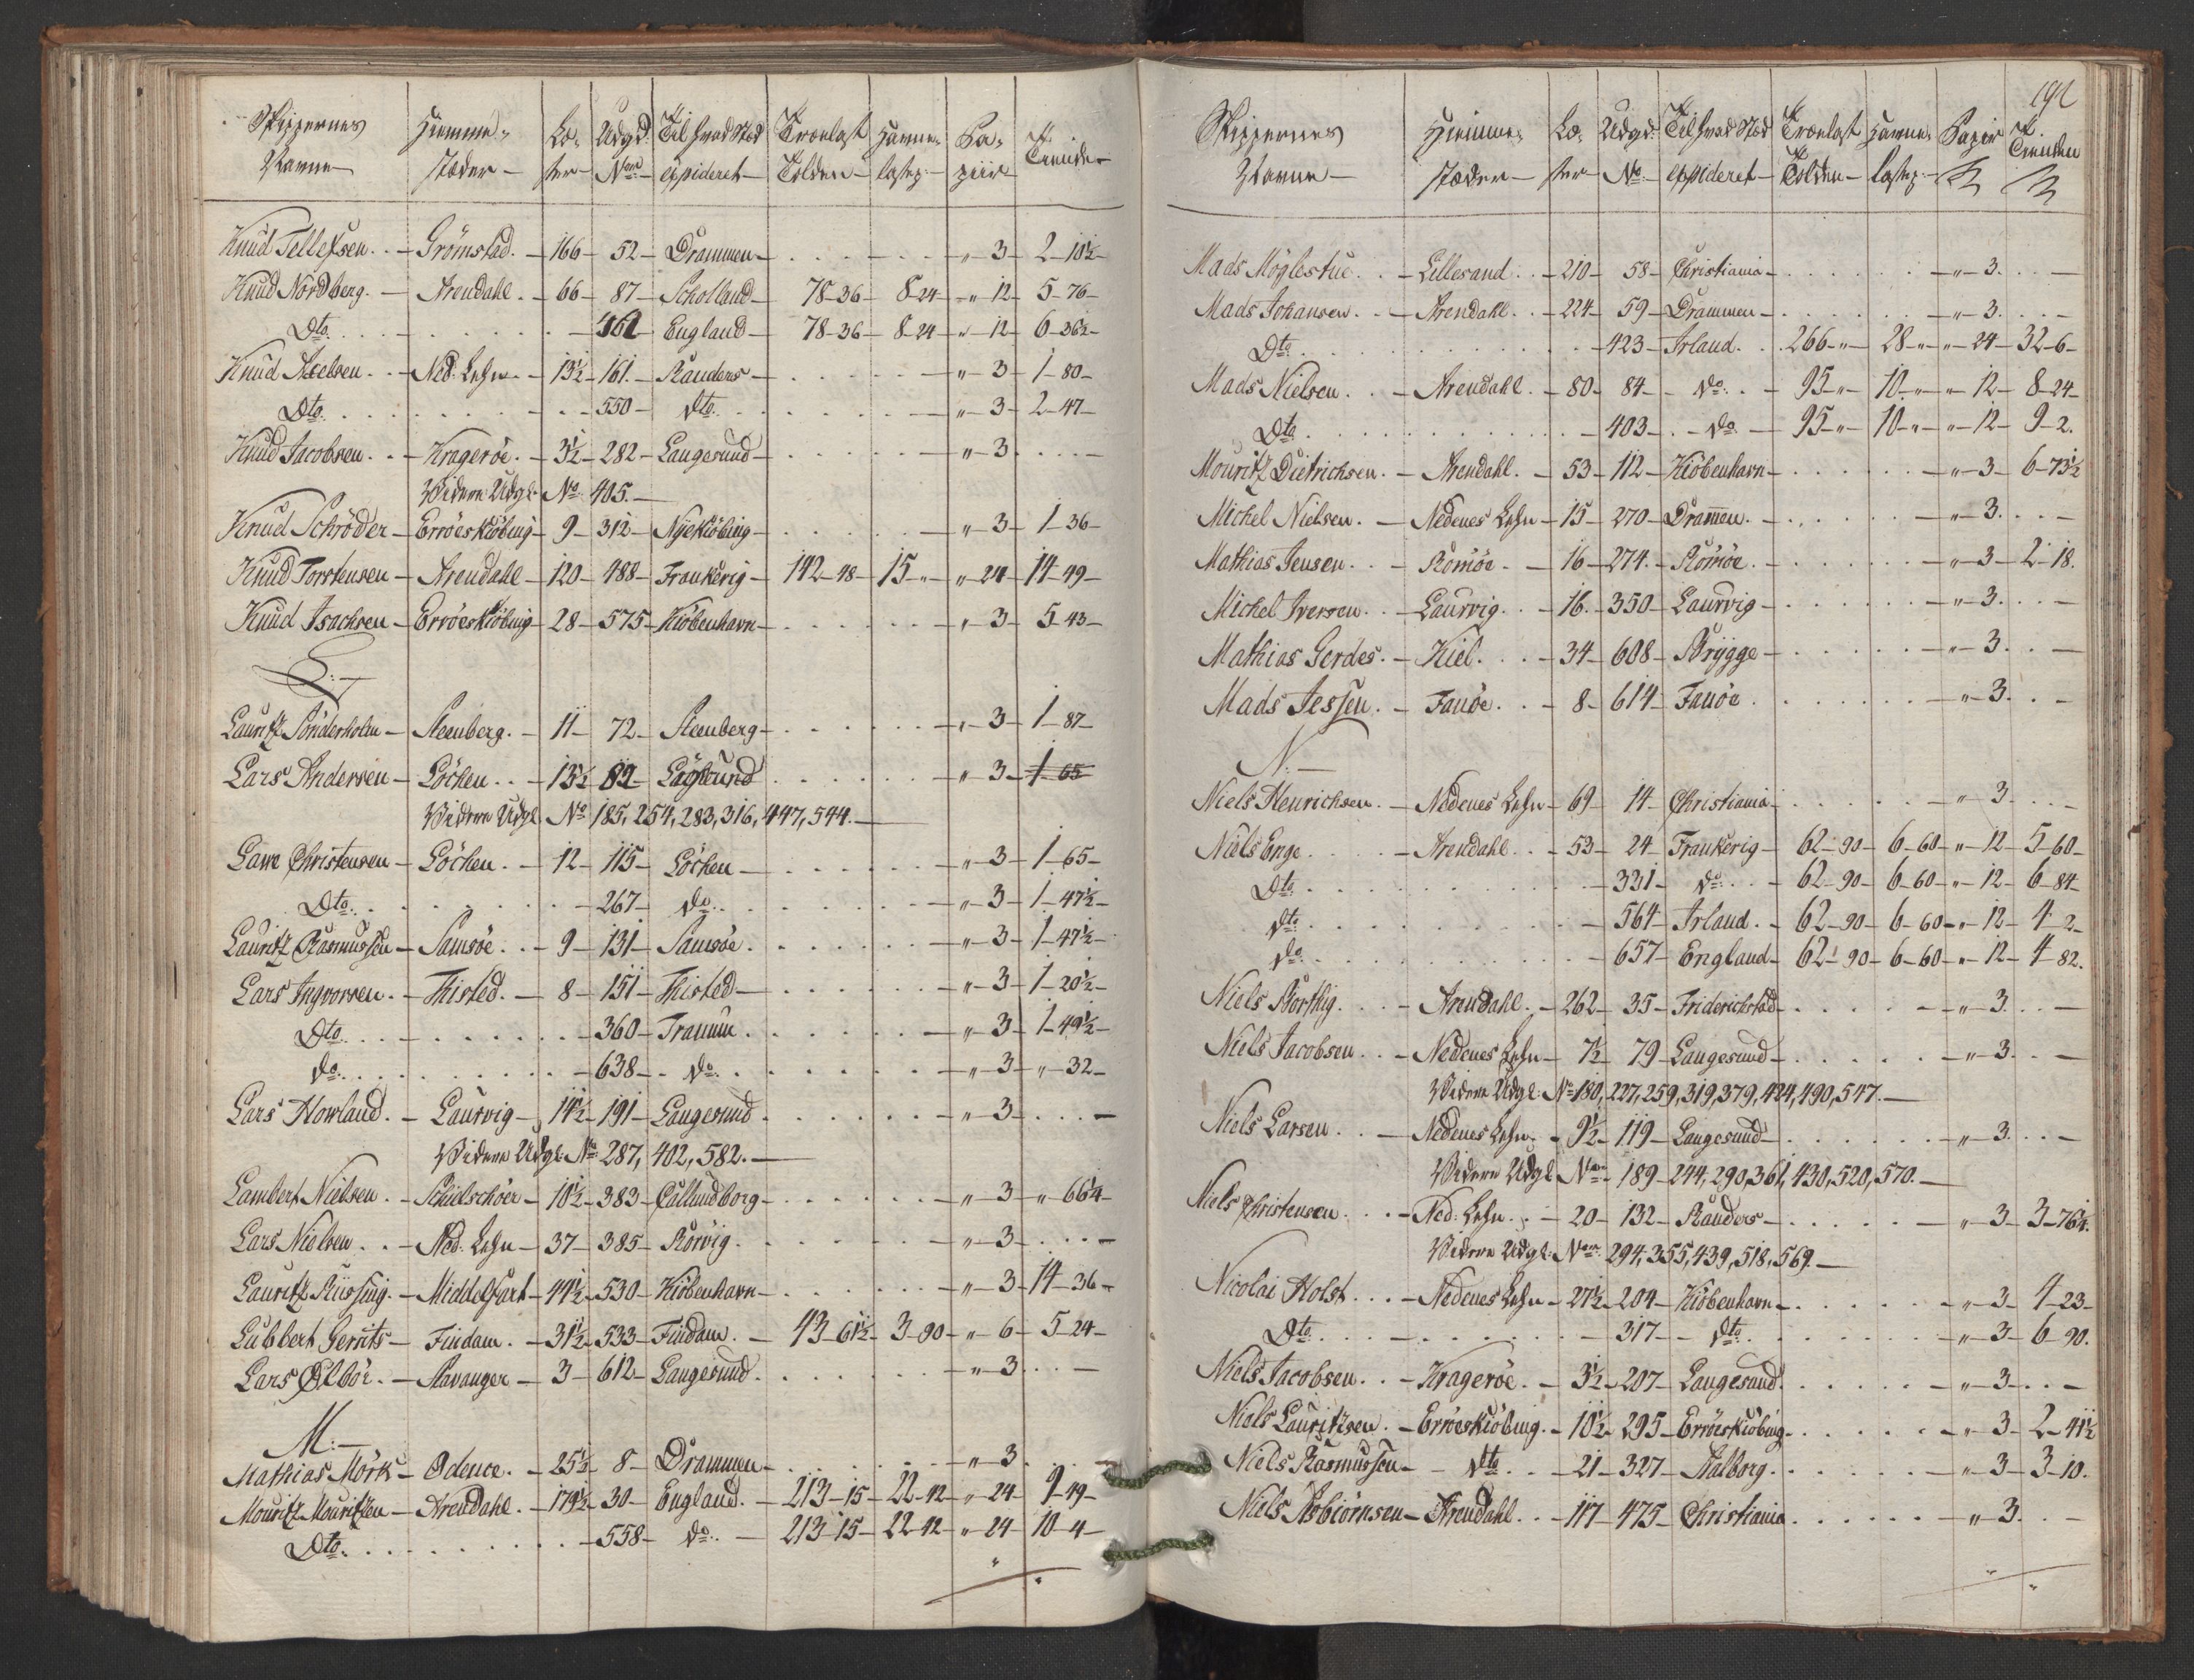 Skippernes Hiemme- Læ- Udgd. Til hvad Stæd Trælast Havne- Pa- Tiender
Navne stæder ster Nor. expideret Tolden lastp. piir
Knud Tellefsen. Grömsted. 166 52 Drammen " 3 2 10½
Knud Nordberg. Arendahl. 66 87 Scholland 78-36 8-24 " 12 5-76
Dto. 461 England 78-36 8-24 " 12 6-36½
Knud Neelsen. Ned. Lehn 13½ 161. Randers " 3 1-80
Dto. 550 dto. " 3 2-47
Knud Jacobsen. Krageröe. 3½ 282 Langesund " 3
Videre Udgl. No. 405.
Knud Schröder Erröeskiöbing 9 312 Nyekiöbing " 3 1-36
Knud Torstensen Arendahl 120 488 Frankerig 142-48 15-" " 24 14-49
Knud Isachsen Erröeskiöbing 28 575 Kiöbenhavn " 3 5-43
L:
Lauritz Sönderholm Steenberg. 11 72 Steenberg " 3 1-87
Lars Andersen Löcken. 13½ 82 " 3 1-65
Videre Udgl. No. 185, 254, 283, 316, 447, 544.
Christensen Löcken. 12 115 Löcken " 3 1-65
Dto. 267 do. " 3 1-47½
Lauritz Rasmussen Samsöe. 9 131 Samsöe. " 3 1-47½
Lars Ingvorsen. Thisted. 8 151 Thisted " 3 1-20½
Dto. 360 " 3 1-49½
do. 638 do. " 3 "-32
Lars Howland. Laurvig 14½ 191 Langesund " 3
Videre Udgl. No. 287, 402, 582.
Lambert Nielsen. Schielschöer 10½ 383 Callundborg " 3 " 66¼
Lars Nielsen. Ned. Lehn 37 385 Rörvig. " 3
Lauritz Rüssing. Middelfart 44½ 530 Kiöbenhavn " 3 14-36
Lubbert Gerrits Findam. 31½ 533 Findam. 43-61½ 3-90 " 6 5-24
Lars Stavanger 3 612 Langesund. " 3
M:
Mathias Mörk Odence. 25½ 8 Drammen " 3
Mouritz Mouritzen Arendahl. 179½ 30 England. 213-15 22-42 " 24 9-49
Dto. 558 do. 213-15 22-42 " 24 10-4
191
Skippernes Hiemme- Læ- Udgd. Til hvad Stæd Trælast Havne- Papir Tienden
Navne stæder ster No. expideret Tolden lastp.
Mads Möglestue. Lillesand. 210 58 Christiania " 3.
Mads Johansen. Arendahl. 224 59 Drammen " 3.
Dto. 423 Irland. 266-" 28-" " 24 32-6
Mads Nielsen. Arendahl. 80 84 do. 95-" 10-" " 12 8-24
Dto. 403 do. 95-" 10-" " 12 9-2.
Mouritz Dietrichsen. Arendahl. 53 112 Kiöbenhavn " 3 6-73½
Michel Nielsen. Nedenes Lehn 15 270 Dramen. " 3.
Mathias Jensen. Römöe. 16 274. Römöe. " 3 2-18.
Michel Iversen. Laurvig. 16. 350 Laurvig " 3.
Mathias Gerdes. Kiel. 34 608 Brygge " 3.
Mads Jessen. Fanöe. 8 614 Fanöe. " 3.
N:
Niels Henrichsen. Nedenes Lehn 69 14 Christiania " 3.
Niels Enge. Arendahl. 53 24 Frankerig 62-90 6-60 " 12 5-60
Dto. 331 do. 62-90 6-60 " 12 6-84
dto. 564 Irland. 62-90 6-60 " 12 4-2
do. 657 England 62-90 6-60 " 12 4-82.
Niels Arendahl. 262 35 Friderichstad " 3.
Niels Jacobsen. Nedenes Lehn 7½ 79 Langesund " 3.
Videre Udgl. No. 180, 227, 259, 319, 379, 424, 490, 547.
Niels Larsen. Nedenes Lehn. 9½ 119 Langesund " 3.
Videre Udgl. Nor. 189 244, 290, 361, 430, 520, 570.
Niels Christensen. Ned. Lehn. 20 132 Randers " 3 3-76¼.
Videre Udgl. Nor. 294, 355, 439, 518, 569.
Nicolai Holst. Nedenes Lehn 27½ 204 Kiöbenhavn " 3 4-23
Dto. 317 dto. " 3 6-90.
Niels Jacobsen. Krageröe. 3½ 207 Langesund. " 3
Niels Lauritzen. Erröeskiöbing. 10½ 295 Erröeskiöbing " 3 2-41½
Niels Rasmussen dto. 21 327 Aalborg. " 3 3-10.
Niels Asbiörnsen Arendahl. 117 475 Christiania. " 3.